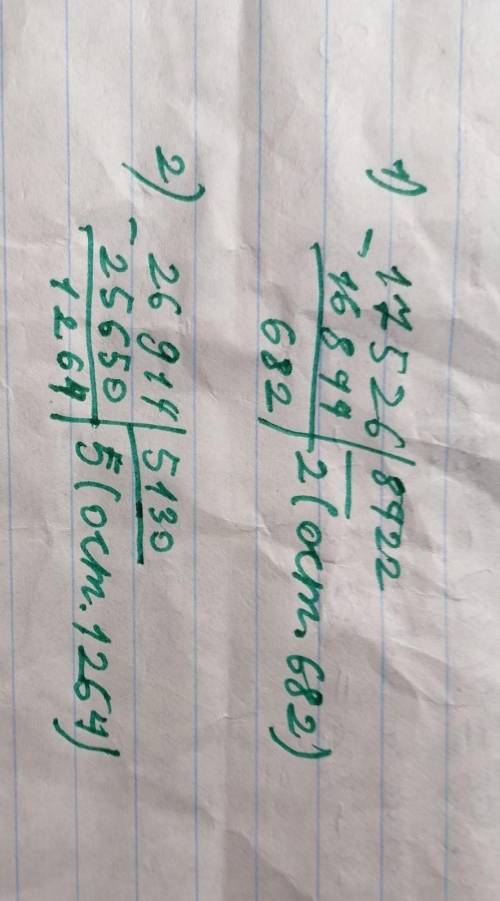 1) - 17526 | 8422
16844 | 2 (ост. 682)
682
2) - 26914 | 5130
25650 | 5 (ост. 1264)
1264